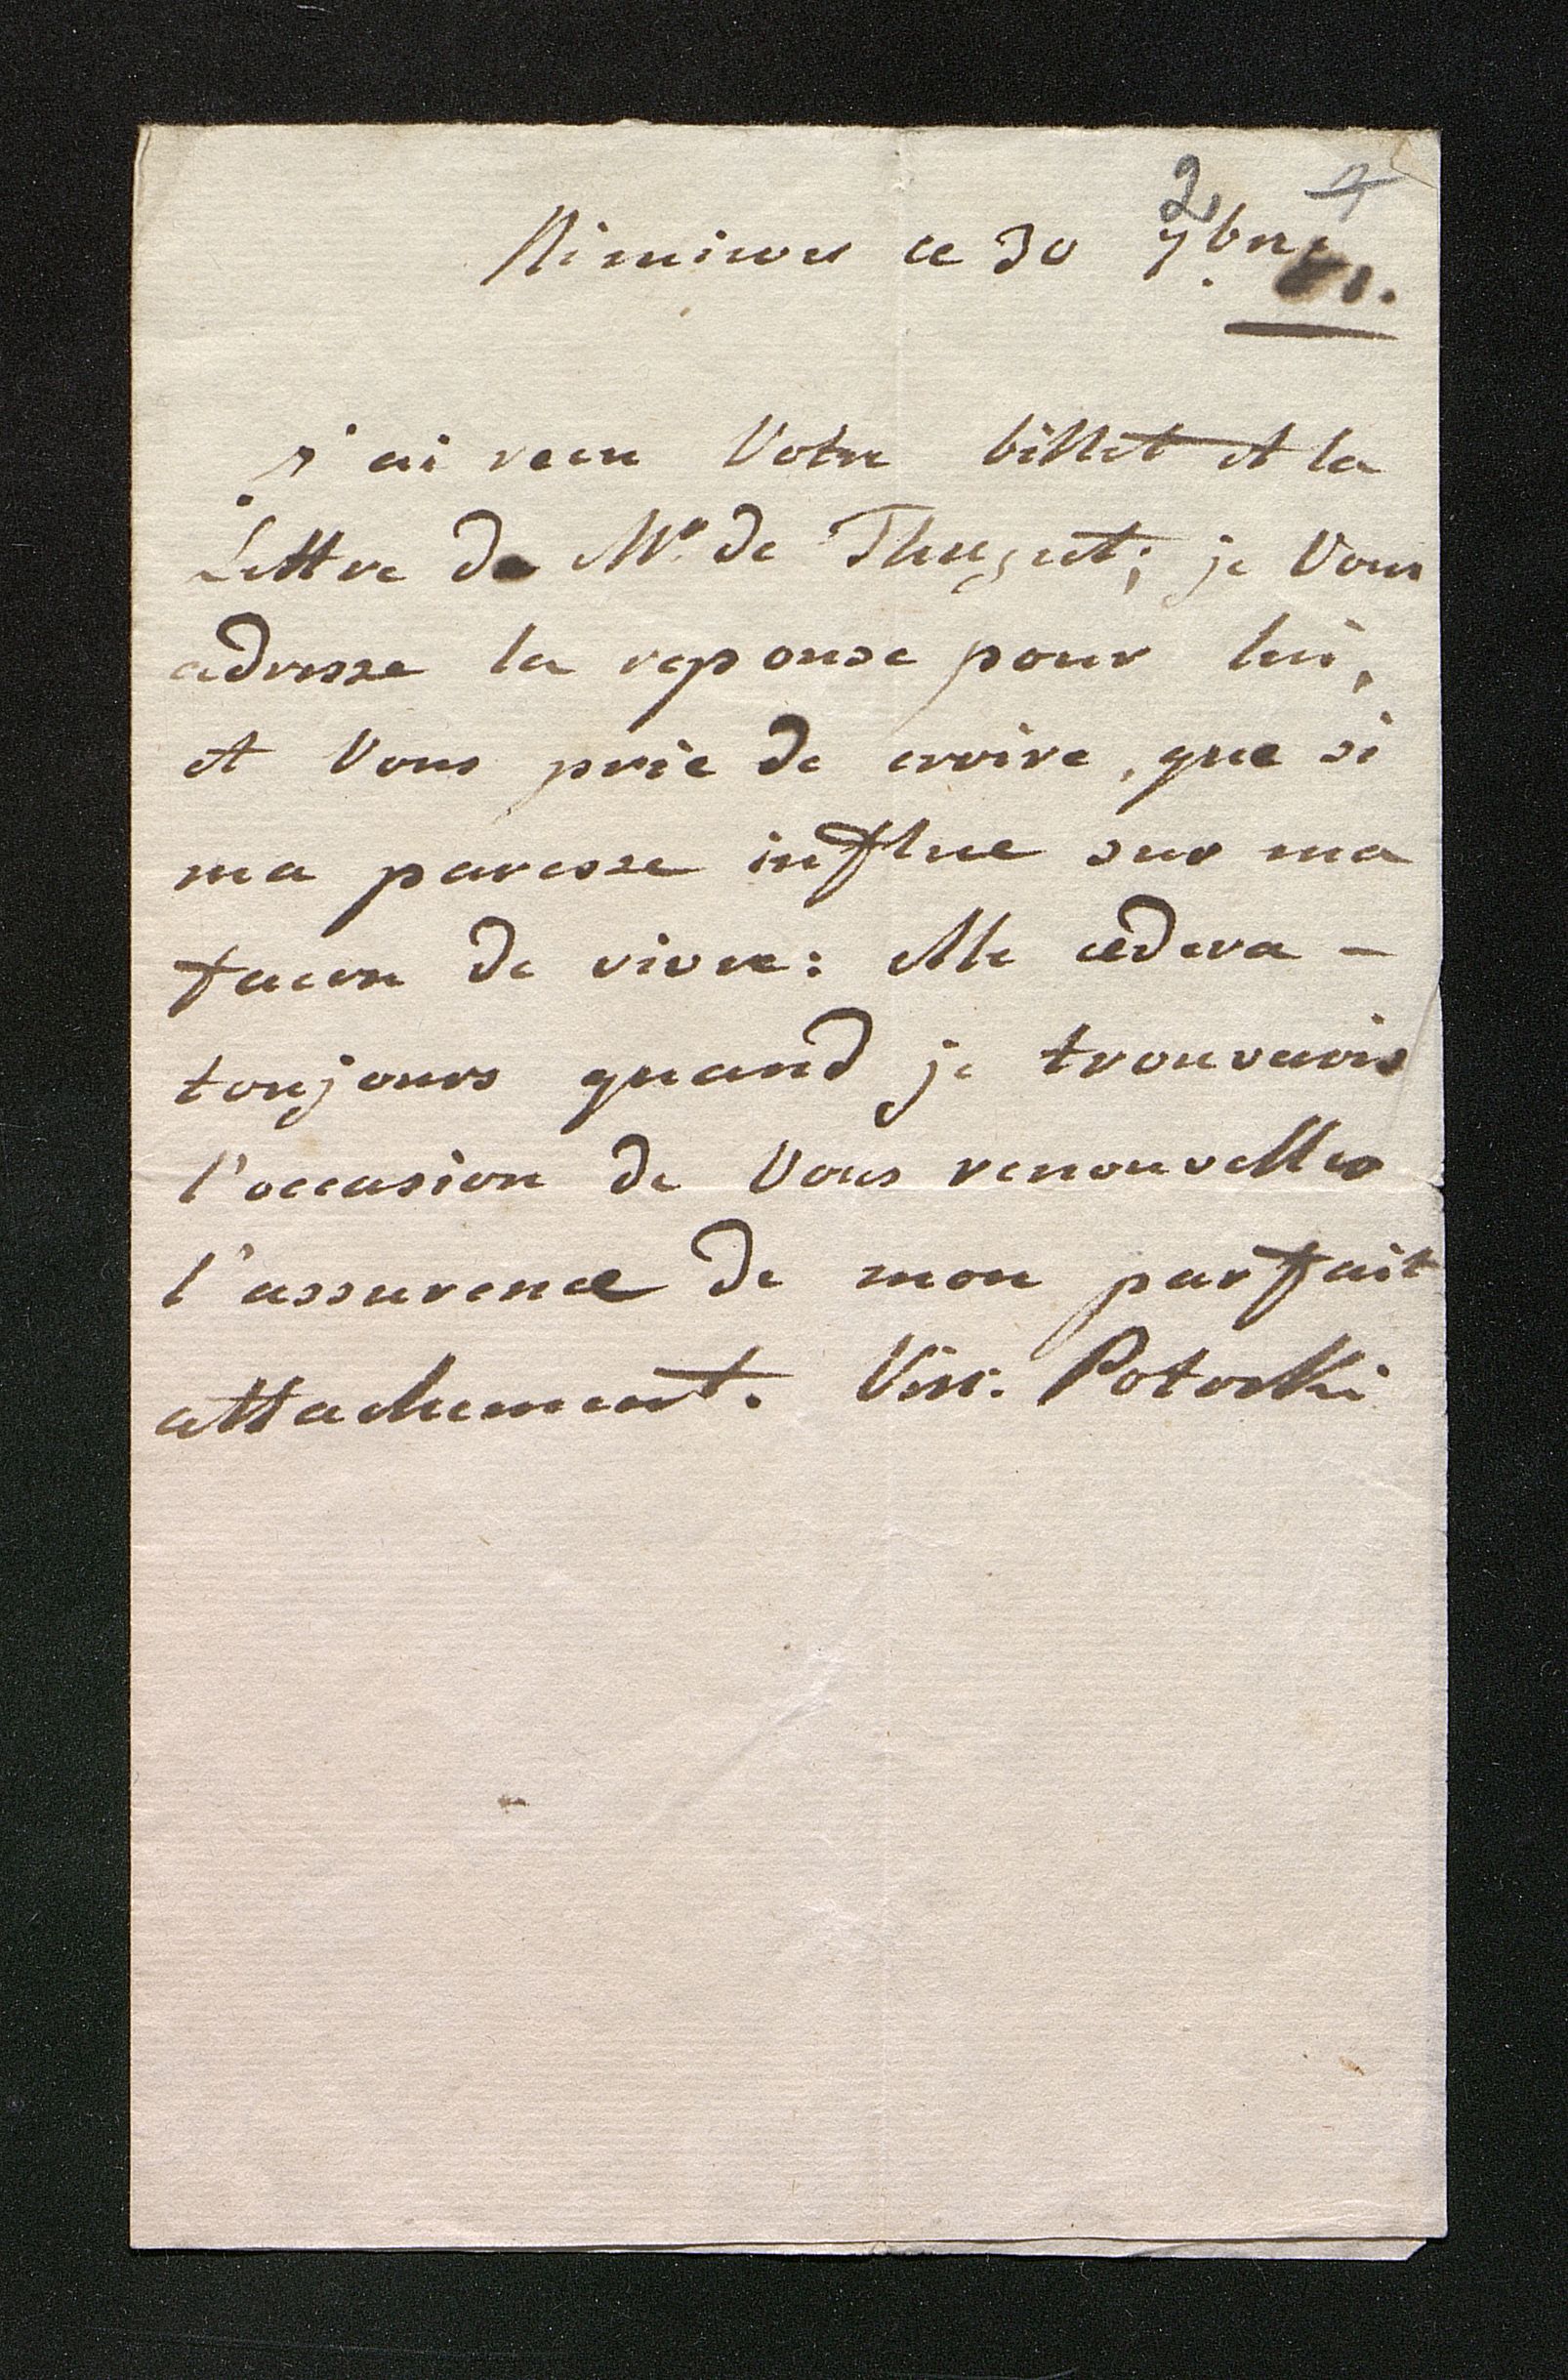 Nimirov ce 30 7bre
2 4
81.
J'ai recu Votre billet et la
Lettre de Mr. de Thugut; je Vous
adresse la reponse pour lui,
et Vous prie de croire, que si
ma paresse influe sur ma
facon de vivre: elle cedera -
toujours quand je trouverois
l'occasion de Vous renouveller
l'assurence de mon parfait
attachement. Vin: Potocki